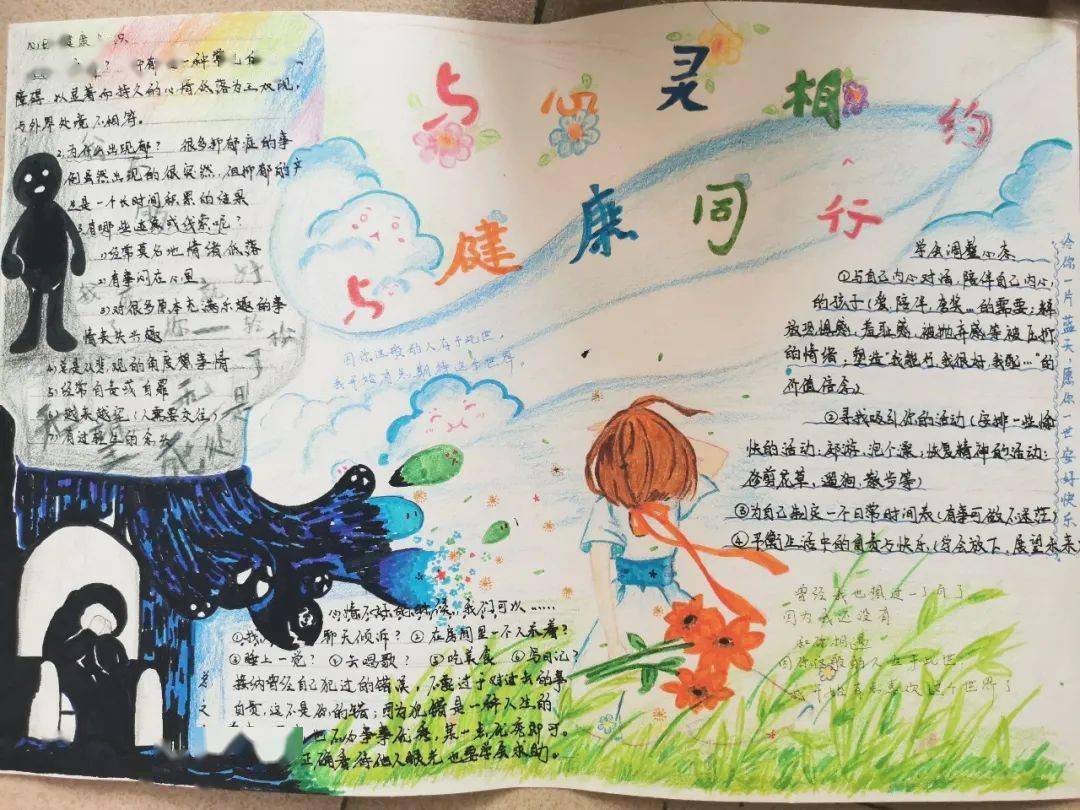 与心灵相约
与健康同行
障碍,以显著而持久的心情低落为主
与外界处境不相符。
2.为什么出现郁? 很多抑郁症的事
例虽然出现的很突然,但抑郁的产
是一个长时间积累的结果
3.有哪些迹象或线索呢?
1)经常莫名地情绪低落
2)有事闷在心里
3)对很多原本充满乐趣的事
情丧失兴趣
4)总是从悲观的角度想事情
5)经常自责或自罪
6)越来越宅(人需要交往)
7)有过轻生的念头
因像你这般的人存于此世,
我开始有点期待这个世界。
学会调整心态
①与自己内心对话,陪伴自己内心
的孩子(爱,陪伴,赞美…的需要;释
放恐惧感,羞耻感,被抛弃感等被压抑
的情绪,塑造"我能行,我很好,我配…"的
价值信念)
②寻找吸引你的活动(安排一些愉
快的活动:郊游,泡个澡;恢复精神的活动:
修剪花草,遛狗,散步等)
③为自己制定一个日常时间表(有事可做不迷茫)
④平衡生活中的负责与快乐(学会放下,展望未来)
给你一片蓝天,愿你一世安好快乐
心情不好的时候,我们可以……
聊天倾诉? ②在房间里一个人待着?
③睡上一觉? ④去唱歌? ⑤吃美食 ⑥写日记?
接纳曾经自己犯过的错误,不要过于对过去的事
自责,这不是你的错;因为犯错是一种人生的
也不必事事死磕,某一点死磕即可。
正确看待他人眼光也要学会求助。
曾经我也想过一了百了
因为我还没有
和你相遇
因像你这般的人生于此世
我开始有点喜欢这个世界了